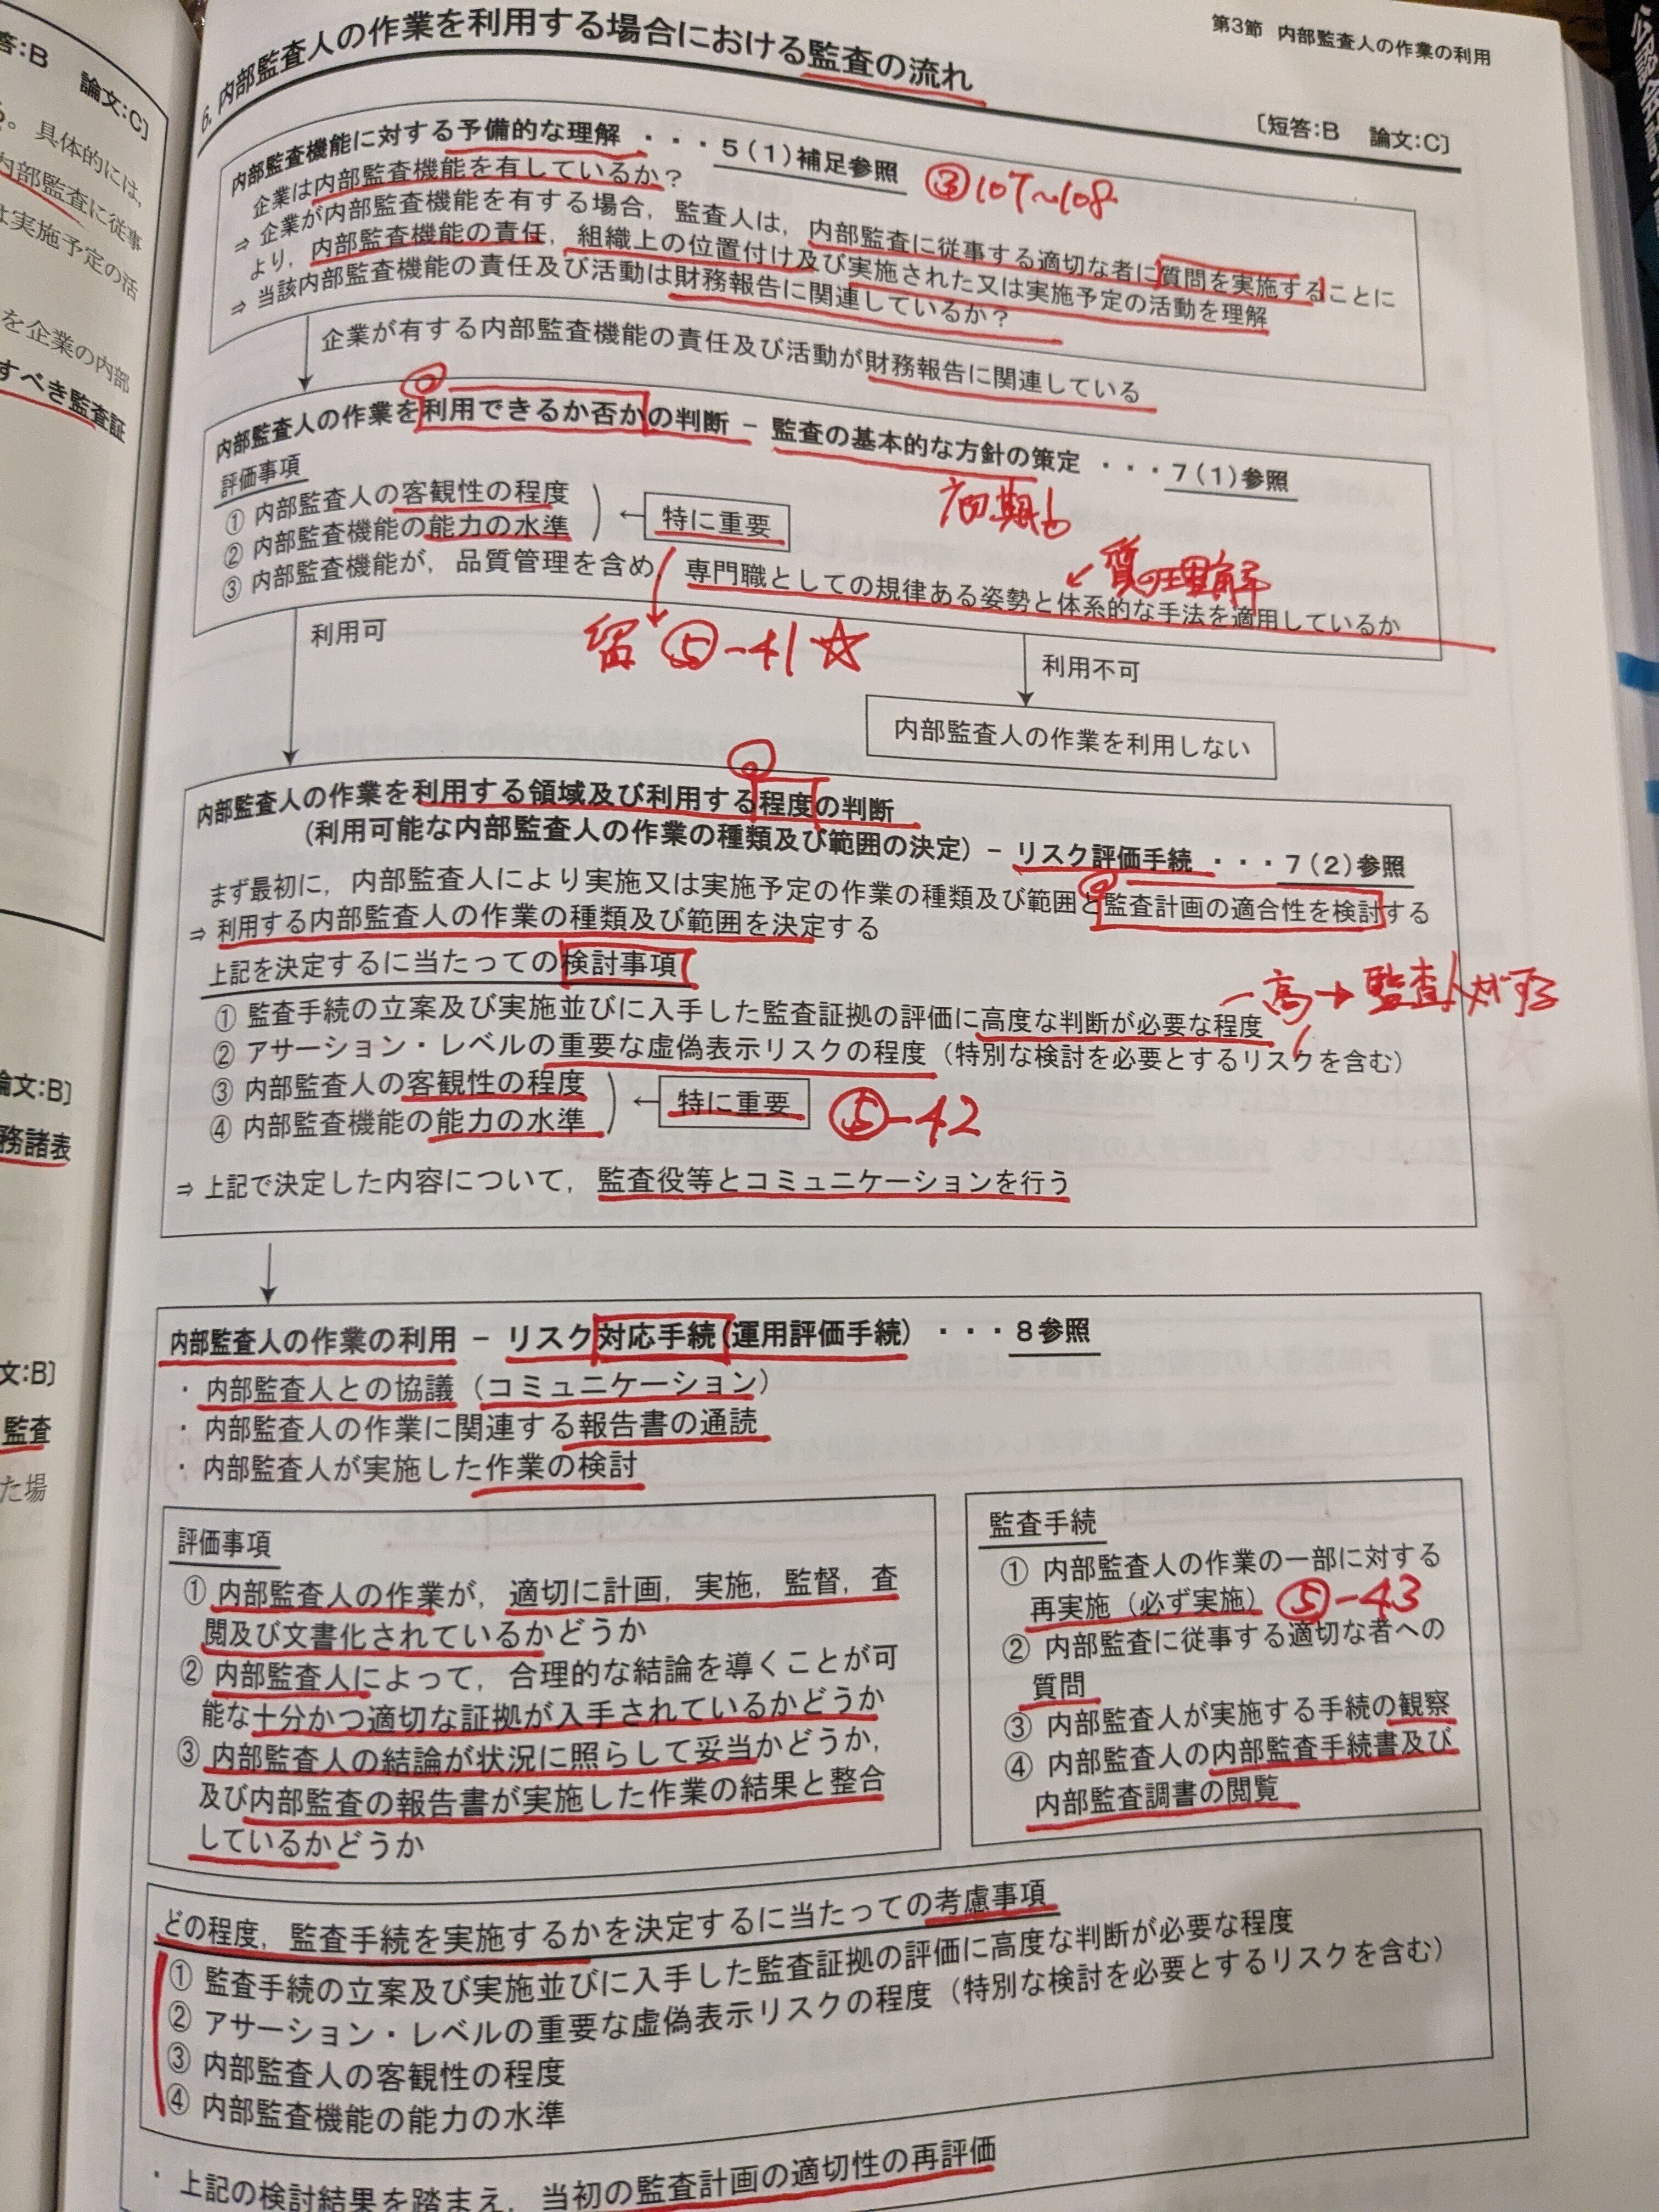 第3節 内部監査人の作業の利用
6. 内部監査人の作業を利用する場合における監査の流れ
〔短答:B 論文:C〕
内部監査機能に対する予備的な理解 ・・・5(1)補足参照
③107〜108
企業は内部監査機能を有しているか？
⇒ 企業が内部監査機能を有する場合，監査人は，内部監査に従事する適切な者に質問を実施することに
より，内部監査機能の責任，組織上の位置付け及び実施された又は実施予定の活動を理解
⇒ 当該内部監査機能の責任及び活動は財務報告に関連しているか？
企業が有する内部監査機能の責任及び活動が財務報告に関連している
内部監査人の作業を利用できるか否かの判断 − 監査の基本的な方針の策定 ・・・7(1)参照
評価事項
① 内部監査人の客観性の程度
② 内部監査機能の能力の水準
← 特に重要
③ 内部監査機能が，品質管理を含め，専門職としての規律ある姿勢と体系的な手法を適用しているか
質の理解
留 ⑤-41☆
利用可
利用不可
内部監査人の作業を利用しない
内部監査人の作業を利用する領域及び利用する程度の判断
(利用可能な内部監査人の作業の種類及び範囲の決定) − リスク評価手続 ・・・7(2)参照
まず最初に，内部監査人により実施又は実施予定の作業の種類及び範囲と監査計画の適合性を検討する
⇒ 利用する内部監査人の作業の種類及び範囲を決定する
上記を決定するに当たっての検討事項
① 監査手続の立案及び実施並びに入手した監査証拠の評価に高度な判断が必要な程度
② アサーション・レベルの重要な虚偽表示リスクの程度（特別な検討を必要とするリスクを含む）
③ 内部監査人の客観性の程度
④ 内部監査機能の能力の水準
← 特に重要
⑤-42
⇒ 上記で決定した内容について，監査役等とコミュニケーションを行う
内部監査人の作業の利用 − リスク対応手続(運用評価手続) ・・・8参照
・ 内部監査人との協議（コミュニケーション）
・ 内部監査人の作業に関連する報告書の通読
・ 内部監査人が実施した作業の検討
評価事項
① 内部監査人の作業が，適切に計画，実施，監督，査
閲及び文書化されているかどうか
② 内部監査人によって，合理的な結論を導くことが可
能な十分かつ適切な証拠が入手されているかどうか
③ 内部監査人の結論が状況に照らして妥当かどうか，
及び内部監査の報告書が実施した作業の結果と整合
しているかどうか
監査手続
① 内部監査人の作業の一部に対する
再実施（必ず実施） ⑤-43
② 内部監査に従事する適切な者への
質問
③ 内部監査人が実施する手続の観察
④ 内部監査人の内部監査手続書及び
内部監査調書の閲覧
どの程度，監査手続を実施するかを決定するに当たっての考慮事項
① 監査手続の立案及び実施並びに入手した監査証拠の評価に高度な判断が必要な程度
② アサーション・レベルの重要な虚偽表示リスクの程度（特別な検討を必要とするリスクを含む）
③ 内部監査人の客観性の程度
④ 内部監査機能の能力の水準
・ 上記の検討結果を踏まえ，当初の監査計画の適切性の再評価
答:B 論文:C〕
具体的には，
内部監査に従事
は実施予定の活
を企業の内部
すべき監査証
論文:B〕
務諸表
文:B〕
監査
た場